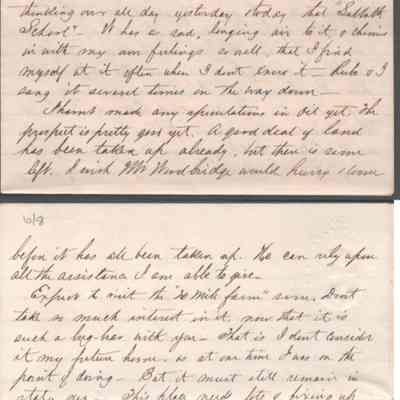 thinking over all day yesterday & today that "Sabbath
School". It has a sad, longing air to it & chimes
in with my own feelings so well, that I find
myself at it often when I dont know it — & I
sang it several times on the way down —
I havnt made any speculations in Oil yet. The
prospect is pretty good yet. A good deal of land
has been taken up already, but there is some
left. I wish Mr Woodbridge would hurry & come
6/8
before it has all been taken up. He can rely upon
all the assistance I am able to give —
Expect to visit the "20 Mile farm" soon. Dont
take so much interest in it, now that it is
such a bug-bear with you — That is I dont consider
it my future home, as at one time I was on the
point of doing — But it must still remain in
This place needs lots of fixing up